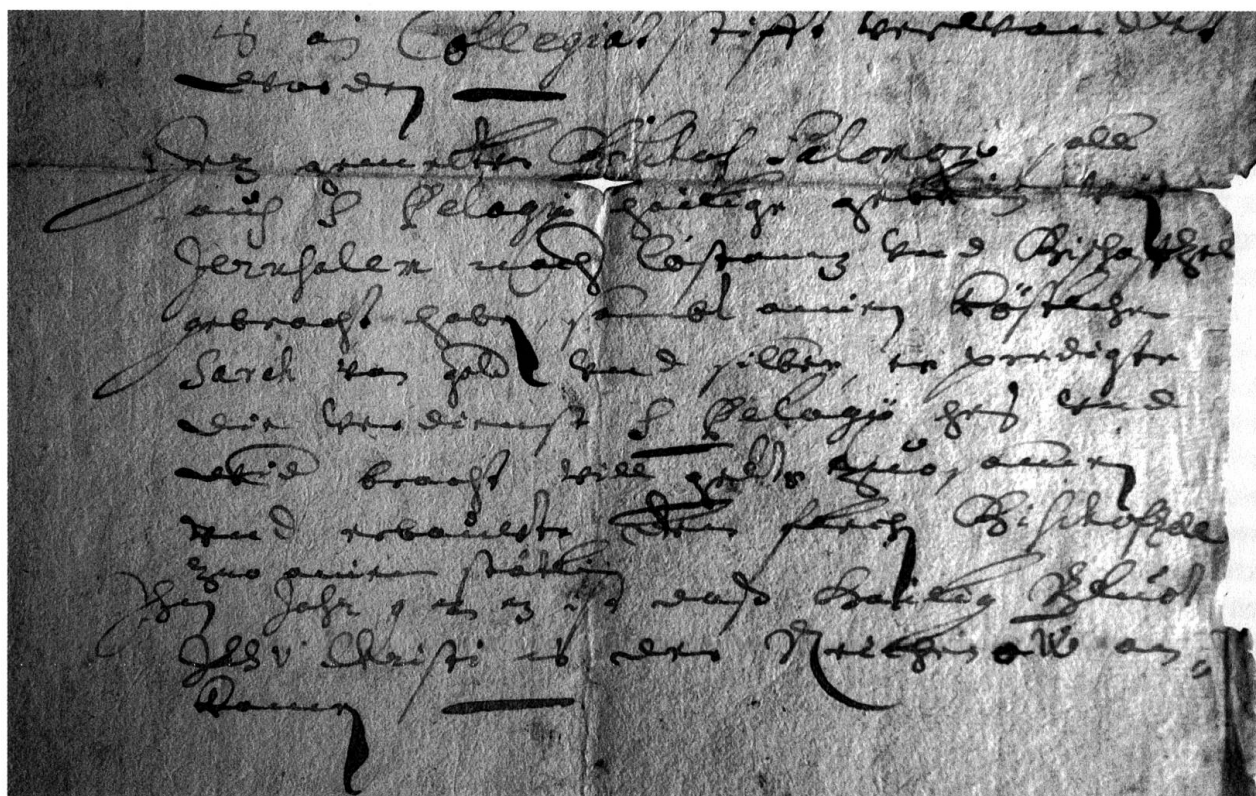 in ain Collegiat stifft verwandlet
worden
Diser ermelter Bischof Salomon, alls
auch S Pelagij hailige gebein von
Jerusalem nach Costantz vnd Bischoffzell
gebracht habe, sambt ainem Köstlichen
Sarch von gold vnd silber, er predigte
die verdienst S Pelagij hes vnd
bracht vill gelts zuo samen
vnd erbauwte den flech Bischoffzell
zuo ainem stättlin
Jm Jahr 9 daß Hailig Bluot
Jesu Christi in der Reichenaw an,,
komen